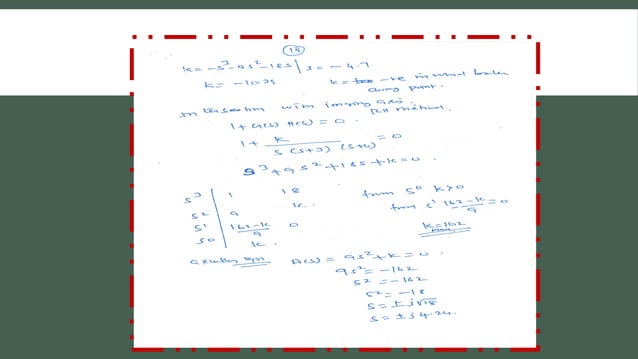 14
K = -s³ - 9s² - 18s | s = -4.7
K = -10.25 K = -ve invalid break
away point.
Intersection with imaginary axis.
RH method.
1 + G(s) H(s) = 0.
1 + K / s (s+3) (s+6) = 0
s³ + 9s² + 18s + K = 0.
s³ 1 18
s² 9 K.
s¹ 162-K / 9 0
s⁰ K.
from s⁰ K>0
from s¹ 162-K / 9 = 0
K = 162
A(s) = 9s² + K = 0.
9s² = -162
s² = -162
s² = -18
s = ± j√18
s = ± j 4.24.